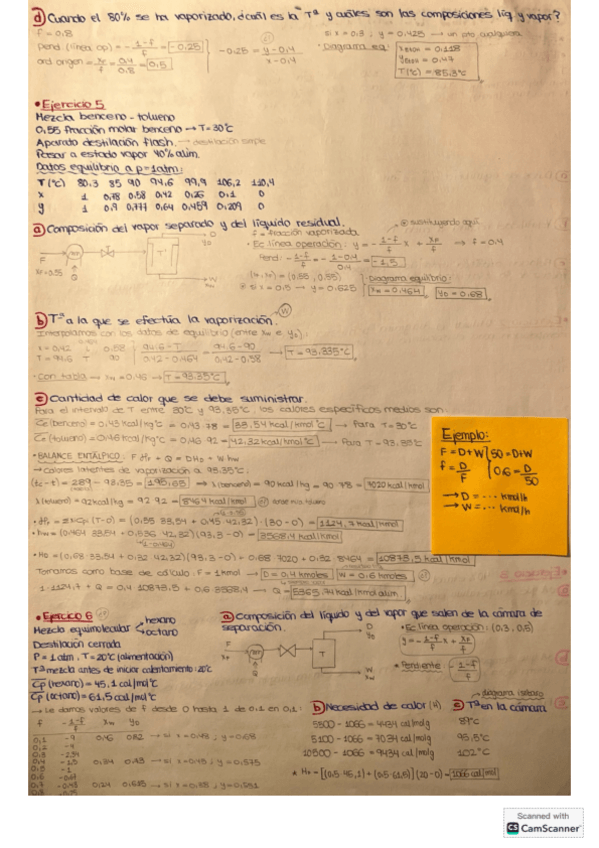 d) Cuando el 80% se ha vaporizado, ¿cuál es la Tª y cuáles son las composiciones líq y vapor?
f = 0,8
Pend. (línea op) = - 1-f/f = -0,25
ord origen = xF/f = 0,4/0,8 = 0,5
-0,25 = y-0,4 / x-0,4
si x = 0,3 ; y = 0,425 → un pto cualquiera
· Diagrama eq:
T(ºC) = 85,3ºC
• Ejercicio 5
Mezcla benceno - tolueno
0,55 fracción molar benceno → T=30ºC
Aparato destilación flash. → destilación simple
Pasar a estado vapor 40% alim.
Datos equilibrio a p=1atm:
T(ºC) 80,3 85 90 94,6 99,9 106,2 110,4
x 1 0,78 0,58 0,42 0,26 0,1 0
y 1 0,9 0,777 0,64 0,459 0,209 0
a) Composición del vapor separado y del líquido residual.
f = fracción vaporizada
sustituyendo aquí
· Ec línea operación: y = - 1-f/f x + xF/f → f=0,4
Pend: - 1-f/f = - 1-0,4/0,4 = -1,5
(0,55, 0,55)
si x=0,5 → y=0,625
Diagrama equilibrio:
xw = 0,464 yD = 0,68
F
xF=0,55
Q
T
D
yD
W
xw
b) Tª a la que se efectúa la vaporización.
Interpolamos con los datos de equilibrio (entre xw e yD).
x = 0,42 0,58
T = 94,6 T 90
94,6-T / 0,42-0,464 = 94,6-90 / 0,42-0,58 → T = 93,335ºC
· Con tabla → xw = 0,46 → T = 93,35ºC
c) Cantidad de calor que se debe suministrar.
Para el intervalo de T entre 30ºC y 93,35ºC, los calores específicos medios son
Ce(benceno) = 0,43 kcal/kgºC = 0,43·78 = 33,54 kcal/kmolºC → Para T=30ºC
Ce(tolueno) = 0,46 kcal/kgºC = 0,46·92 = 42,32 kcal/kmolºC → Para T=93,35ºC
• BALANCE ENTÁLPICO: F HF + Q = D HD + W hw
→ Calores latentes de vaporización a 93,35ºC:
(tc-t) = 289 - 93,35 = 195,65 → λ(benceno) = 90 kcal/kg = 90·78 = 7020 kcal/kmol
λ(tolueno) = 92 kcal/kg = 92·92 = 8464 kcal/kmol
· HF = Σx Cp (T-0) = (0,55·33,54 + 0,45·42,32)·(30-0) = 1124,7 kcal/kmol
· hw = (0,464·33,54 + 0,536·42,32)(93,3-0) = 3568,4 kcal/kmol
· HD = (0,68·33,54 + 0,32·42,32)(93,3-0) + 0,68·7020 + 0,32·8464 = 10873,5 kcal/kmol
Tomamos como base de cálculo: F = 1 kmol → D = 0,4 kmoles W = 0,6 kmoles
1·1124,7 + Q = 0,4·10873,5 + 0,6·3568,4 → Q = 5365,74 kcal/kmol alim.
Ejemplo:
F = D+W 50 = D+W
f = D/F 0,6 = D/50
→ D = ... kmol/h
→ W = ... kmol/h
• Ejercicio 6
Mezcla equimolecular hexano octano
Destilación cerrada
P = 1 atm, T = 20ºC (alimentación)
Tª mezcla antes de iniciar calentamiento: 20ºC
Cp (hexano) = 45,1 cal/molºC
Cp (octano) = 61,5 cal/molºC
→ Le damos valores de f desde 0 hasta 1 de 0,1 en 0,1:
f - 1-f/f xw yD
0,1 -9 0,46 0,82 → si x=0,48 ; y=0,68
0,4 -1,5
0,5 -1
a) Composición del líquido y del vapor que salen de la cámara de separación.
• Ec línea operación: (0,5, 0,5)
y = - 1-f/f x + xF/f
• Pendiente: - 1-f/f
F
xF
Q
T
D
yD
W
xw
b) Necesidad de calor (H)
5500 - 1066 = 4434 cal/molg
10500 - 1066 = 9434 cal/molg
c) Tª en la cámara
95,5ºC
102ºC
* HF = [(0,5·45,1) + (0,5·61,5)] (20-0) = 1066 cal/mol
Scanned with
CS CamScanner